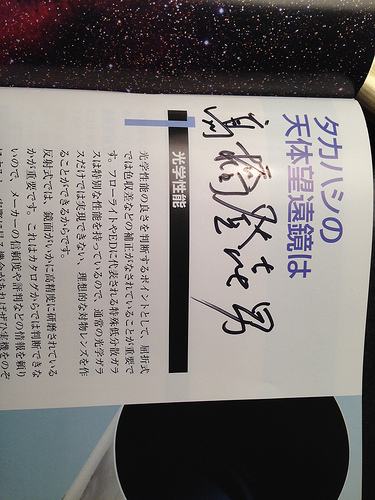 タカハシの
天体望遠鏡は
光学性能
光学性能の良さを判断するポイントとして、屈折式
では色収差などの補正がなされていることが重要で
す。フローライトやEDに代表される特殊低分散ガラ
スは特別な性能を持っているので、通常の光学ガラ
スだけでは実現できない、理想的な対物レンズを作
ることができるからです。
反射式では、鏡面がいかに高精度に研磨されている
かが重要です。これはカタログからでは判断できな
いので、メーカーの信頼度や評判などの情報を頼り
機会があればぜひ実機をのぞ